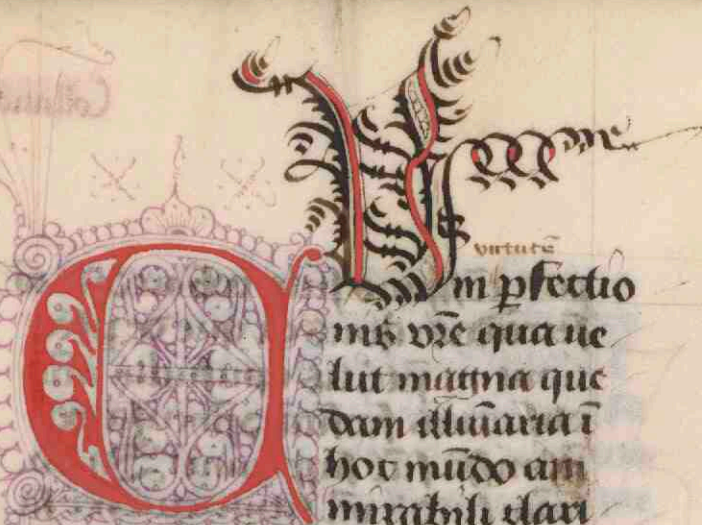 virtutē
Vim ꝑfectio
nis vr̄e qua ue
lut magna que
dam illūaria ī
hoc mūdo am
mirabili clari